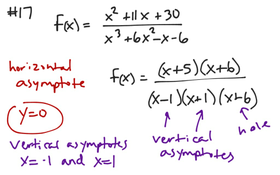 #17
f(x) = (x² + 11x + 30) / (x³ + 6x² - x - 6)
horizontal asymptote
y=0
f(x) = (x+5)(x+6) / (x-1)(x+1)(x+6)
vertical asymptotes
hole
vertical asymptotes
x=-1 and x=1